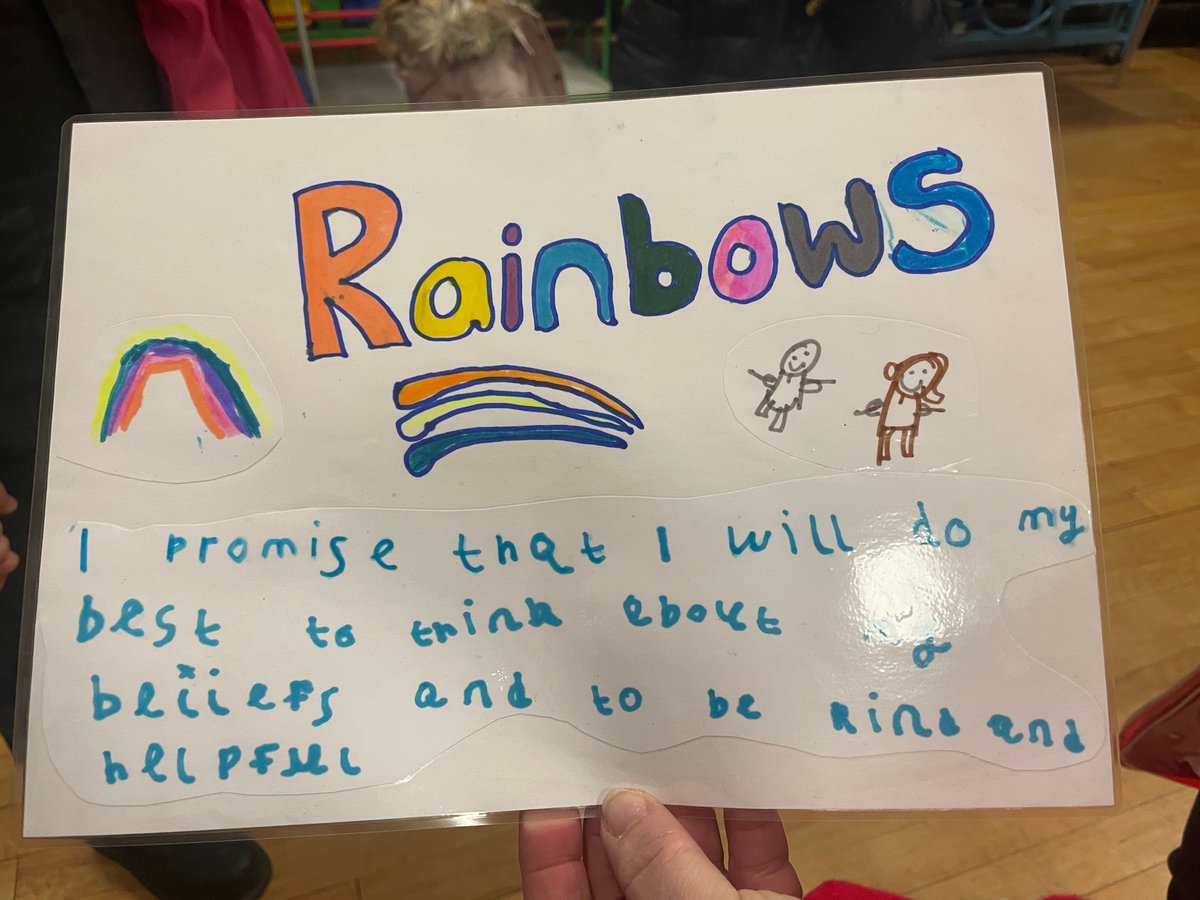 Rainbows
I promise that I will do my
best to think about
beliefs and to be kind and
helpful